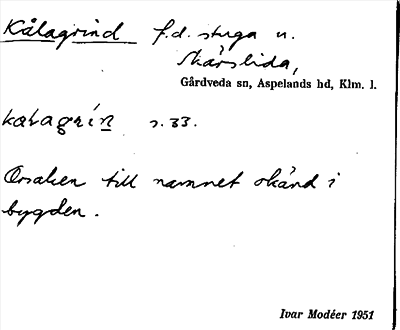 Kålagrind f.d. stuga u.
Skärslida,
Gårdveda sn, Aspelands hd, Klm. l.
kalagrín s. 33.
Orsaken till namnet okänd i
bygden.
Ivar Modéer 1951